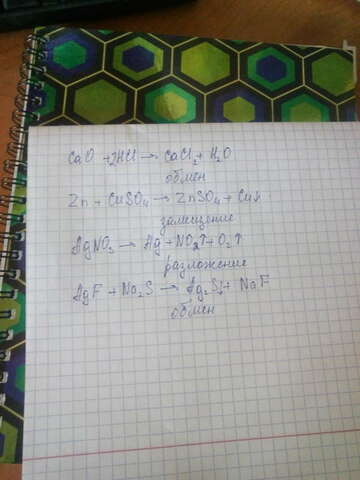 CaO + 2HCl → CaCl₂ + H₂O
обмен
Zn + CuSO₄ → ZnSO₄ + Cu↓
замещение
AgNO₃ → Ag + NO₂↑ + O₂↑
разложение
AgF + Na₂S → Ag₂S↓ + NaF
обмен